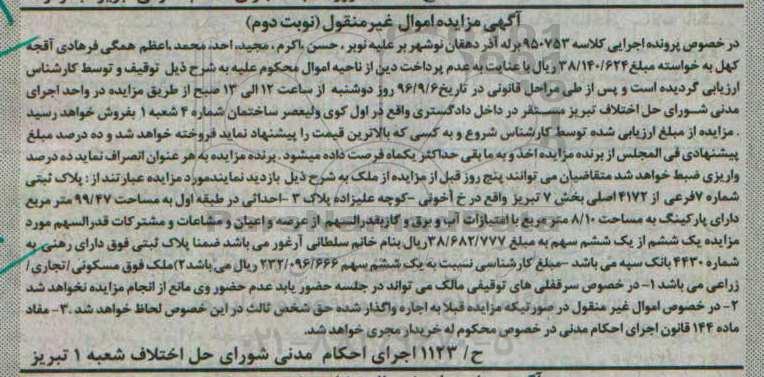 آگهی مزایده اموال غیر منقول (نوبت دوم)
در خصوص پرونده اجرایی کلاسه ۹۵۰۷۵۳ برله آذر دهقان نوشهر بر علیه نوبر ، حسن ،اکرم ، مجید، احد، محمد ،اعظم همگی فرهادی آقجه
کهل به خواسته مبلغ ۳۸/۱۴۰/۶۲۴ ریال با عنایت به عدم پرداخت دین از ناحیه اموال محکوم علیه به شرح ذیل توقیف و توسط کارشناس
ارزیابی گردیده است و پس از طی مراحل قانونی در تاریخ ۹۶/۹/۶ روز دوشنبه از ساعت ۱۲ الی ۱۳ صبح از طریق مزایده در واحد اجرای
مدنی شورای حل اختلاف تبریز مستقر در داخل دادگستری واقع در اول کوی ولیعصر ساختمان شماره ۴ شعبه ۱ بفروش خواهد رسید
. مزایده از مبلغ ارزیابی شده توسط کارشناس شروع و به کسی که بالاترین قیمت را پیشنهاد نماید فروخته خواهد شد و ده درصد مبلغ
پیشنهادی فی المجلس از برنده مزایده اخذ و به ما بقی حداکثر یکماه فرصت داده میشود . برنده مزایده به هر عنوان انصراف نماید ده درصد
واریزی ضبط خواهد شد متقاضیان می توانند پنج روز قبل از مزایده از ملک به شرح ذیل بازدید نمایندمورد مزایده عبارتند از : پلاک ثبتی
شماره ۷ فرعی از ۴۱۷۲ اصلی بخش ۷ تبریز واقع در خ آخونی -کوچه علیزاده پلاک ۳ -احداثی در طبقه اول به مساحت ۹۹/۴۷ متر مربع
دارای پارکینگ به مساحت ۸/۱۰ متر مربع با امتیازات آب و برق و گازبقدرالسهم از عرصه و اعیان و مشاعات و مشترکات قدرالسهم مورد
مزایده یک ششم از یک ششم سهم به مبلغ ۳۸/۶۸۲/۷۷۷ ریال بنام خانم سلطانی آرغور می باشد ضمنا پلاک ثبتی فوق دارای رهنی به
شماره ۴۴۳۰ بانک سپه می باشد -مبلغ کارشناسی نسبت به یک ششم سهم ۲۳۲/۰۹۶/۶۶۶ ریال می باشد۲)ملک فوق مسکونی /تجاری/
زراعی می باشد ۱- در خصوص سرقفلی های توقیفی مالک می تواند در جلسه حضور یابد عدم حضور وی مانع از انجام مزایده نخواهد شد
۲- در خصوص اموال غیر منقول در صورتیکه مزایده قبلا به اجاره واگذار شده حق شخص ثالث در این خصوص لحاظ خواهد شد .۳- مفاد
ماده ۱۴۴ قانون اجرای احکام مدنی در خصوص محکوم له خریدار مجری خواهد شد.
ح/ ۱۱۲۳ اجرای احکام مدنی شورای حل اختلاف شعبه ۱ تبریز